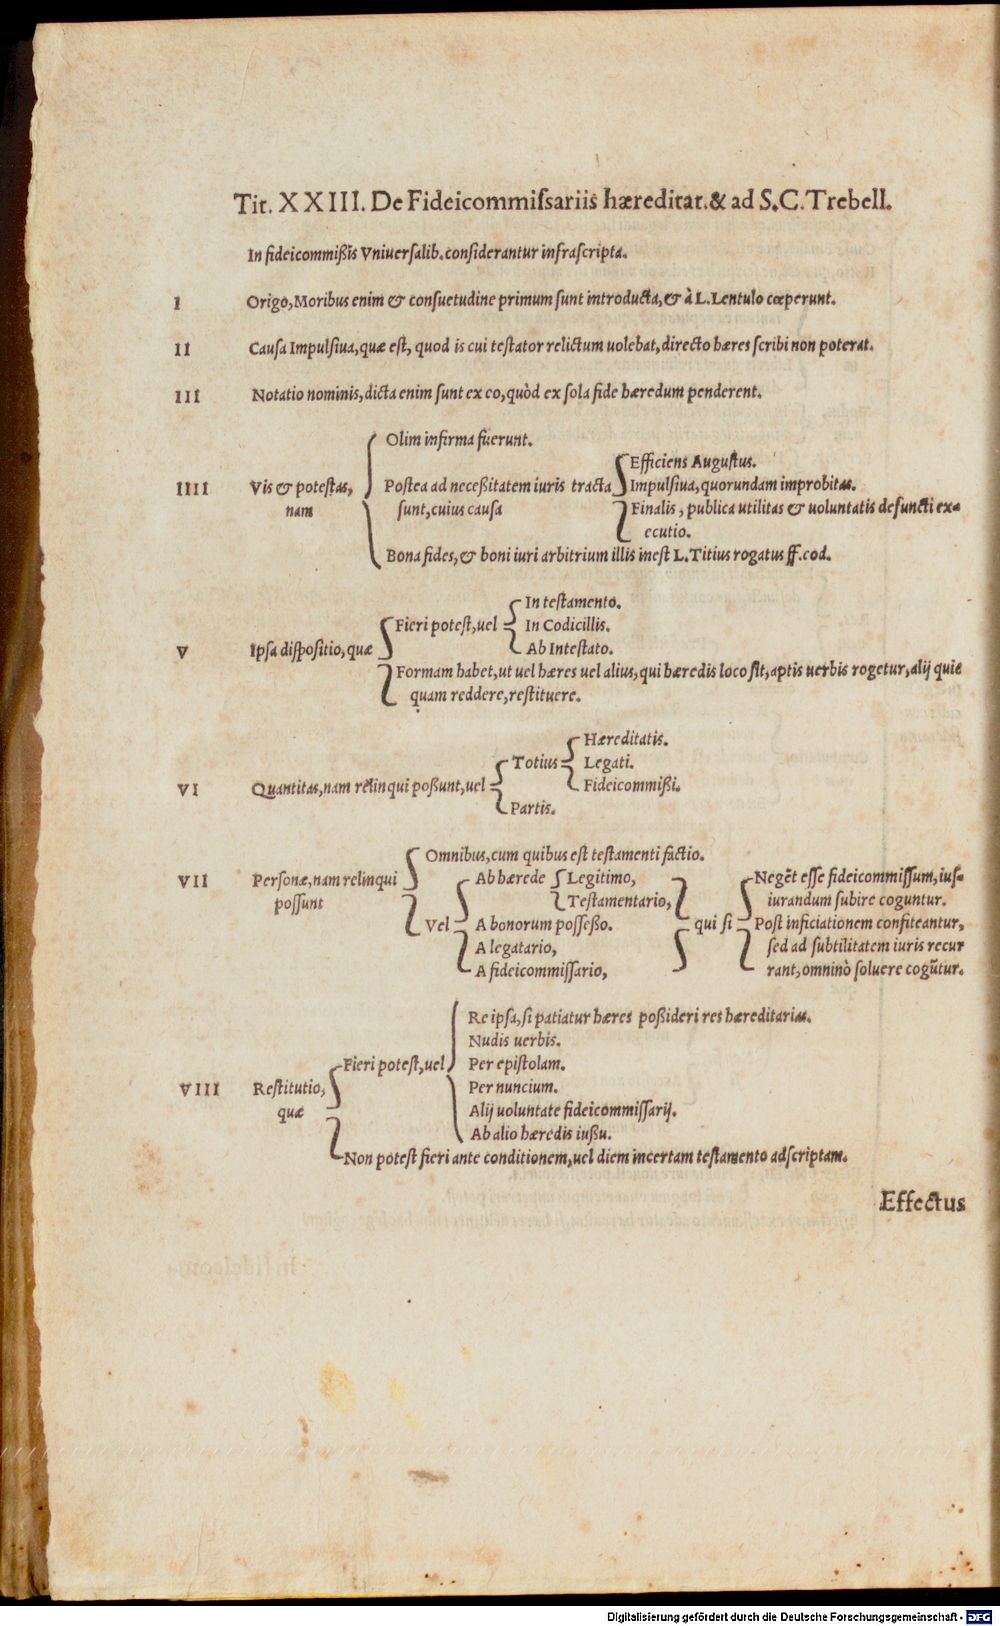 Tit. XXIII. De Fideicommiſsariis hæreditat. & ad S.C. Trebell.
In fideicommißis Vniuerſalib. conſiderantur infraſcripta.
I Origo, Moribus enim & conſuetudine primum ſunt introducta, & à L. Lentulo cœperunt.
II Cauſa Impulſiua, quæ eſt, quod is cui teſtator relictum uolebat, directo hæres ſcribi non poterat.
III Notatio nominis, dicta enim ſunt ex eo, quòd ex ſola fide hæredum penderent.
Olim infirma fuerunt.
Efficiens Auguſtus.
IIII Vis & poteſtas, Poſtea ad neceßitatem iuris tracta Impulſiua, quorundam improbitas.
nam ſunt, cuius cauſa Finalis, publica utilitas & uoluntatis defuncti ex-
ecutio.
Bona fides, & boni iuri arbitrium illis ineſt L. Titius rogatus ff. eod.
In teſtamento.
Fieri poteſt, uel In Codicillis.
V Ipſa diſpoſitio, quæ Ab Inteſtato.
Formam habet, ut uel hæres uel alius, qui hæredis loco ſit, aptis uerbis rogetur, alij quic
quam reddere, reſtituere.
Hæreditatis.
Totius Legati.
VI Quantitas, nam relinqui poßunt, uel Fideicommißi.
Partis.
Omnibus, cum quibus eſt teſtamenti factio.
VII Perſonæ, nam relinqui Ab hærede Legitimo, Negẽt eſſe fideicommiſſum, iuſ-
poſſunt Teſtamentario, iurandum ſubire coguntur.
Vel A bonorum poſſeßo. qui ſi Poſt inficiationem confiteantur,
A legatario, ſed ad ſubtilitatem iuris recur
A fideicommiſſario, rant, omninò ſoluere cogũtur.
Re ipſa, ſi patiatur hæres poßideri res hæreditarias.
Nudis uerbis.
Fieri poteſt, uel Per epiſtolam.
VIII Reſtitutio, Per nuncium.
quæ Alij uoluntate fideicommiſſarij.
Ab alio hæredis iußu.
Non poteſt fieri ante conditionem, uel diem incertam teſtamento adſcriptam.
Effectus
Digitalisierung gefördert durch die Deutsche Forschungsgemeinschaft - DFG